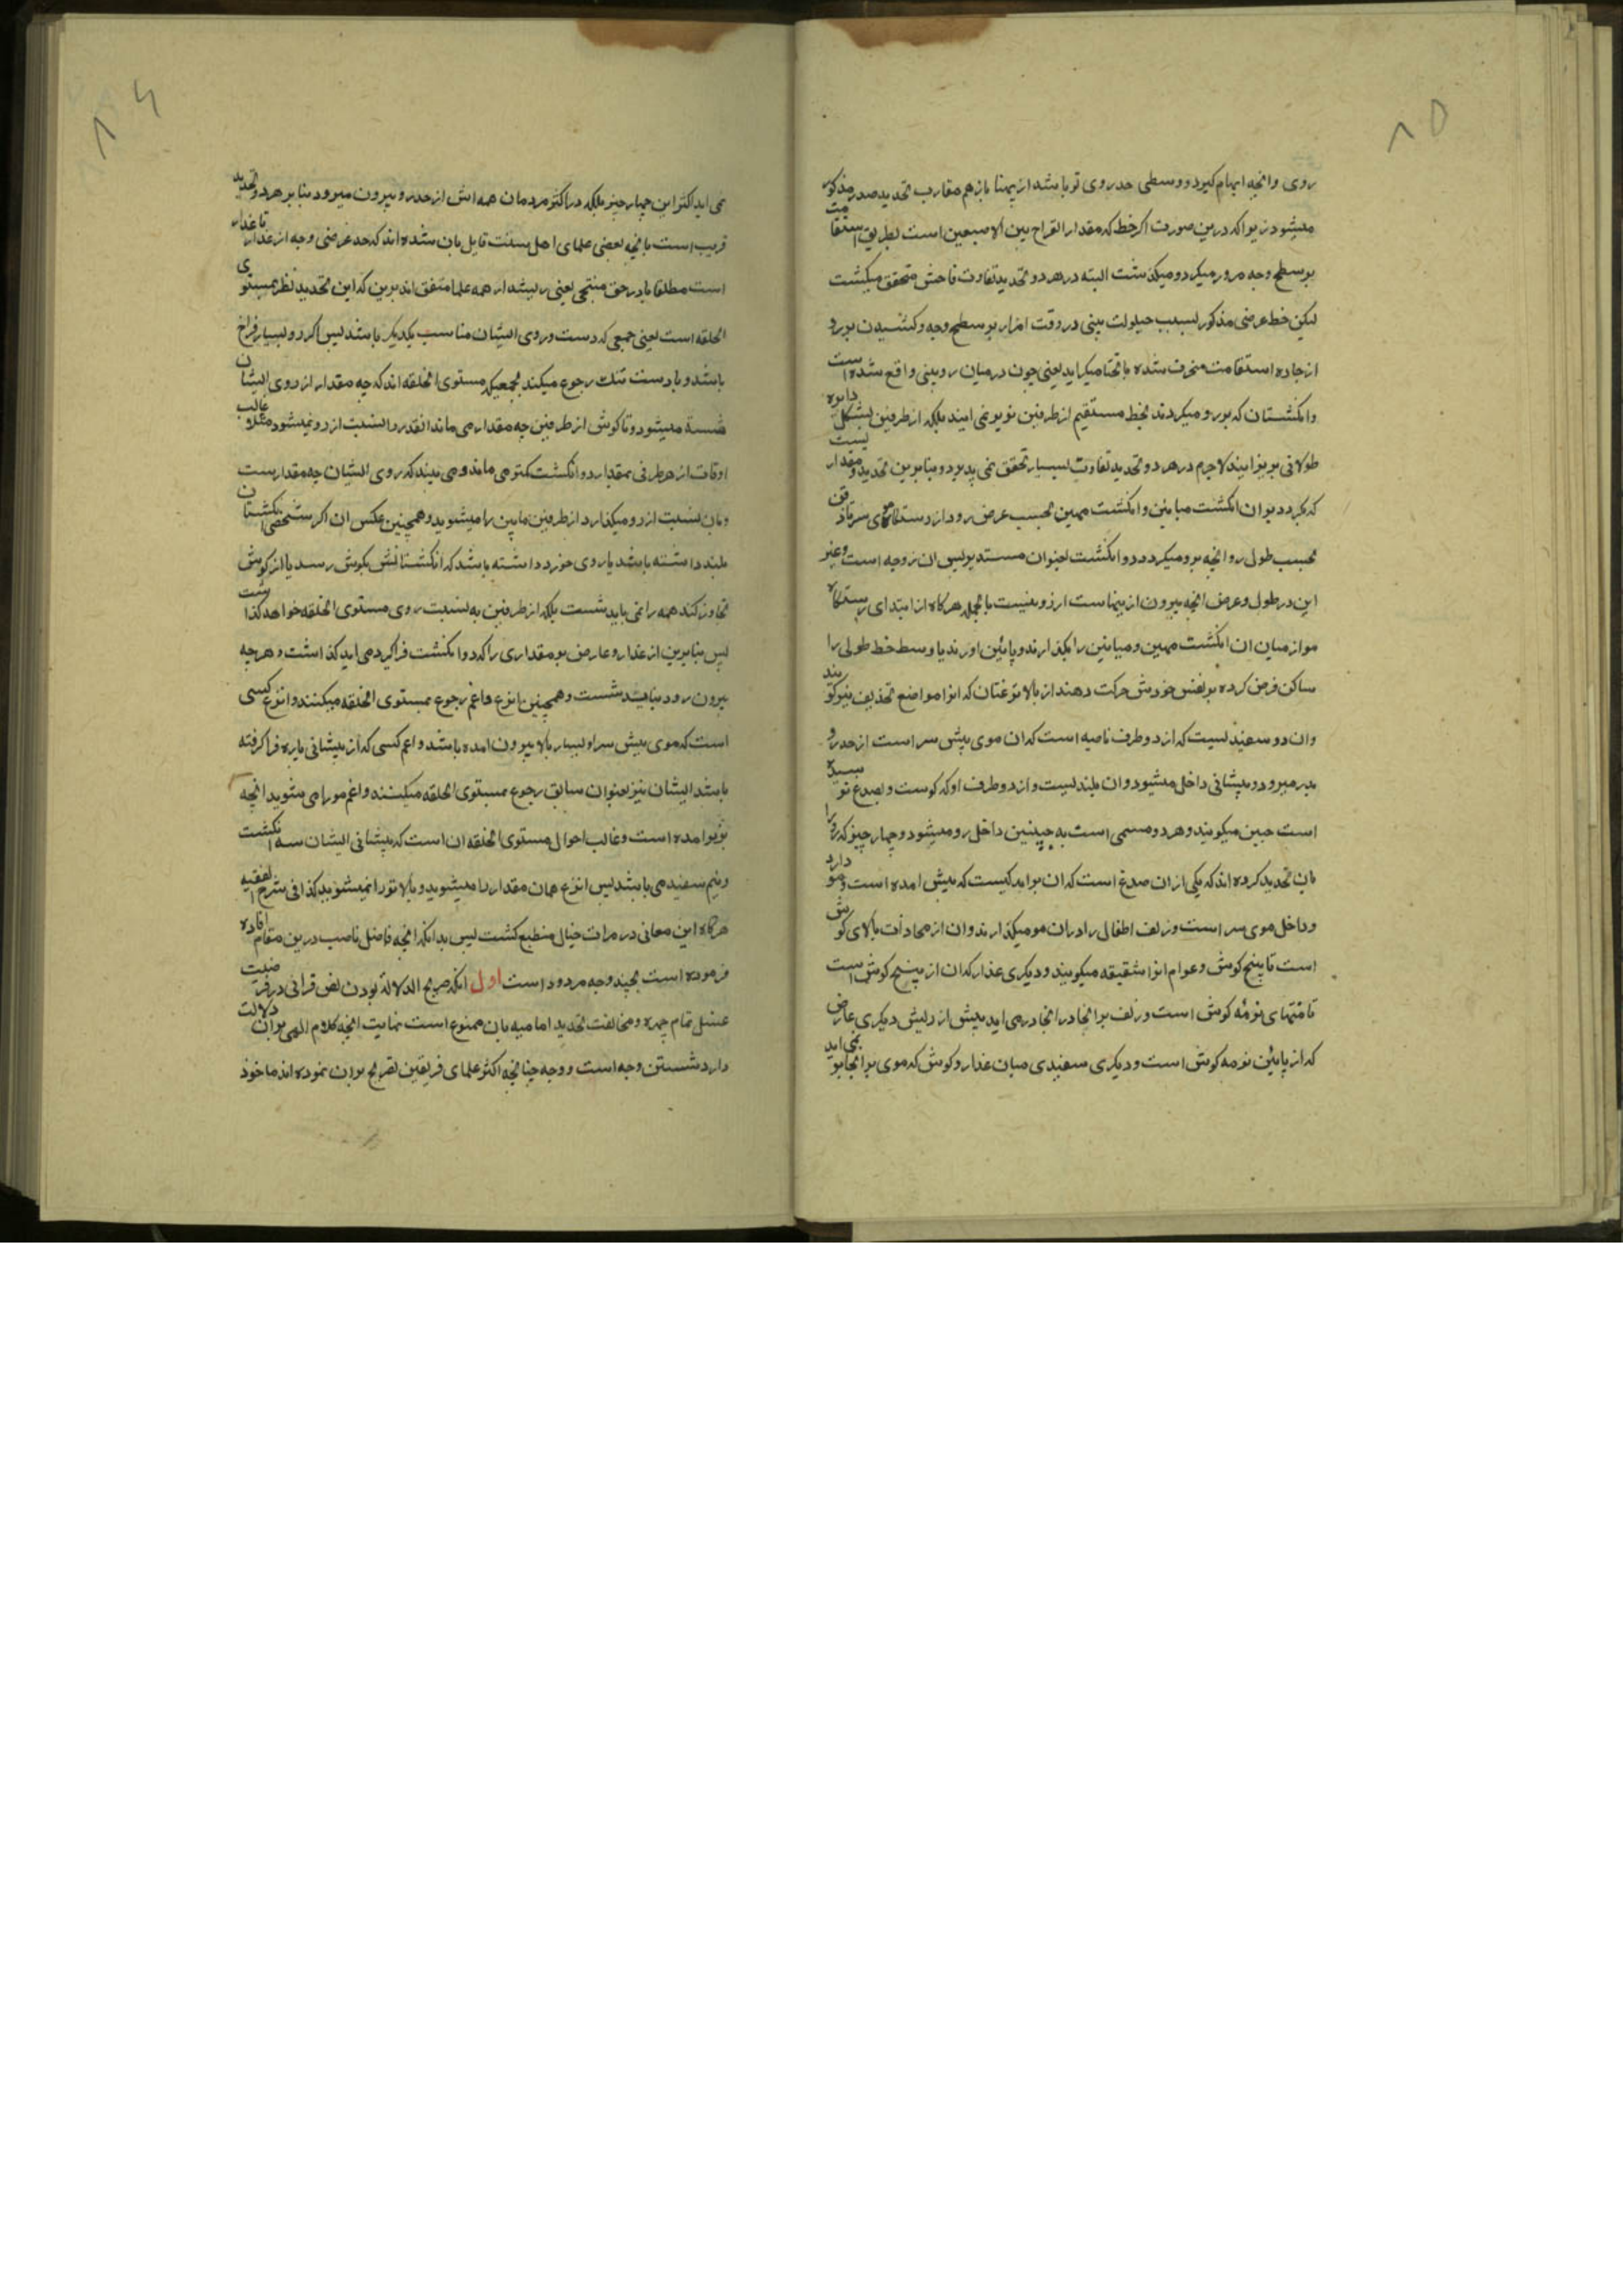 ۸۵
روی وانچه ابهام کیرد و وسطی حد روی تو باشد از پهنا بازهم مقارب تحدید صدر مذکور
میشود زیرا که درین صورت اکر خط که مقدار انفراج بین الاصبعین است بطریق استقامت
بر سطح وجه مرور میکرد و میکذشت البته در هر دو تحدید تفاوت فاحش متحقق میکشت
لیکن خط عرضی مذکور بسبب حیلولت بینی در وقت امرار بر سطح وجه و کشیدن برو
از جاده استقامت منحرف شده بانحنا میکراید یعنی چون در میان رو بینی واقع شده است
وانکشتان که برو میکردند بخط مستقیم از طرفین برو نمی ایند بلکه از طرفین بشکل دایره
طولانی بزیر ایند لاجرم در هر دو تحدید تفاوت بسیار تحقق نمی پذیرد و بنابرین تحدید و مقدار یست
که بکردد بران انکشت میانین وانکشت مهین بحسب عرض رو و از رستنکاه موی سر تا ذقن
بحسب طول رو وانچه برو میکردد دو انکشت بعنوان مستدیر پس ان ز وجه است وغیر
این در طول وعرض انچه بیرون از اینهاست از رو نیست بالجمله هر کاه از ابتدای رستنکاه
مو از میان ان انکشت مهین و میانین را بکذارند و پائین اورند یا وسط خط طولی را
ساکن فرض کرده بر نفس خودش حرکت دهند از بالا نزعتان که انرا مواضع تحذیف نیز کویند
وان دو سفیدیست که از دو طرف ناصیه است که ان موی پیش سر است از حد رو
بدر میرود و پیشانی داخل میشود وان بلندیست و از دو طرف او که کوست و بصدغ نرسیده
است جبین میکویند وهر دو مسمی است به جبینین داخل رو میشود و چهار چیز که رو را
بان تحدید کرده اند که یکی از ان صدغ است که ان برامدکیست که پیش امده است و مو دارد
و داخل موی سر است و زلف اطفال را در ان مو میکذارند وان از محاذات بالای کوش
است تا بیخ کوش وعوام انرا شقیقه میکویند و دیکری عذار که ان از بیخ کوش است
تا منتهای نرمه کوش است و زلف برانجا در انجا در می اید پیش از ریش دیکری عارض
که از پائین نرمه کوش است و دیکری سفیدی میان عذار و کوش که موی برانجا بر نمی اید
۸۶
نمی اید اکثر این چهار چیز بلکه در اکثر مردمان همه اش از حد رو بیرون میرود بنا بر هر دو تحدید
قریب است بانچه بعضی علمای اهل سنت قایل بان شده اند که حد عرضی وجه از عذار تا عذار
است مطلقا یا در حق ملتحی یعنی ریشدار همه علما متفق اند برین که این تحدید نظر بمستوی
الخلقه است یعنی جمعی که دست و روی ایشان مناسب یکدیکر باشد پس اکر رو بسیار فراخ
باشد و یا دست تنک رجوع میکند بجمعیکه مستوی الخلقه اند که چه مقدار از روی ایشان
شسته میشود و تا کوش از طرفین چه مقدار می ماند انقدر را بنسبت از رو نمیشود مثلا غالب
اوقات از هر طرفی بمقدار دو انکشت کمتر می ماند و می بیند که روی ایشان چه مقدار است
و بان نسبت از رو میکذارد از طرفین مابین را میشوید و همچنین عکس ان اکر شخصی انکشتان
بلند داشته باشد یا روی خورد داشته باشد که انکشتانش بکوش رسد یا از کوش
تجاوز کند همه را نمی باید شست بلکه از طرفین به نسبت روی مستوی الخلقه خواهد کذاشت
پس بنابرین از عذار و عارض بر مقداری را که دو انکشت فراکیرد می اید کذاشت و هر چه
بیرون رود نباید شست و همچنین انزع و اغم رجوع بمستوی الخلقه میکنند وانزع کسی
است که موی پیش سر او بسیار بالا بیرون امده باشد واغم کسی که از پیشانی پاره فرا کرفته
باشد ایشان نیز بعنوان سابق رجوع بمستوی الخلقه میکنند واغم مو را می شوید انچه
بزیر امده است وغالب احوال مستوی الخلقه ان است که پیشانی ایشان سه انکشت
و نیم سفید می باشد پس انزع همان مقدار را میشوید و بالاتر را نمیشوید کذا فی شرح الفقیه
هرکاه این معانی در مرات خیال منطبع کشت پس بدانکه انچه فاضل ناصب درین مقام افاده
فرموده است بچند وجه مردود است اول انکه صریح الدلالة بودن نص قرانی در فرضیت
غسل تمام چهره و مخالفت تحدید امامیه بان ممنوع است نهایت انچه کلام الهی بران دلالت
دارد شستن وجه است و وجه چنانچه اکثر علمای فریقین تصریح بران نموده اند ماخوذ